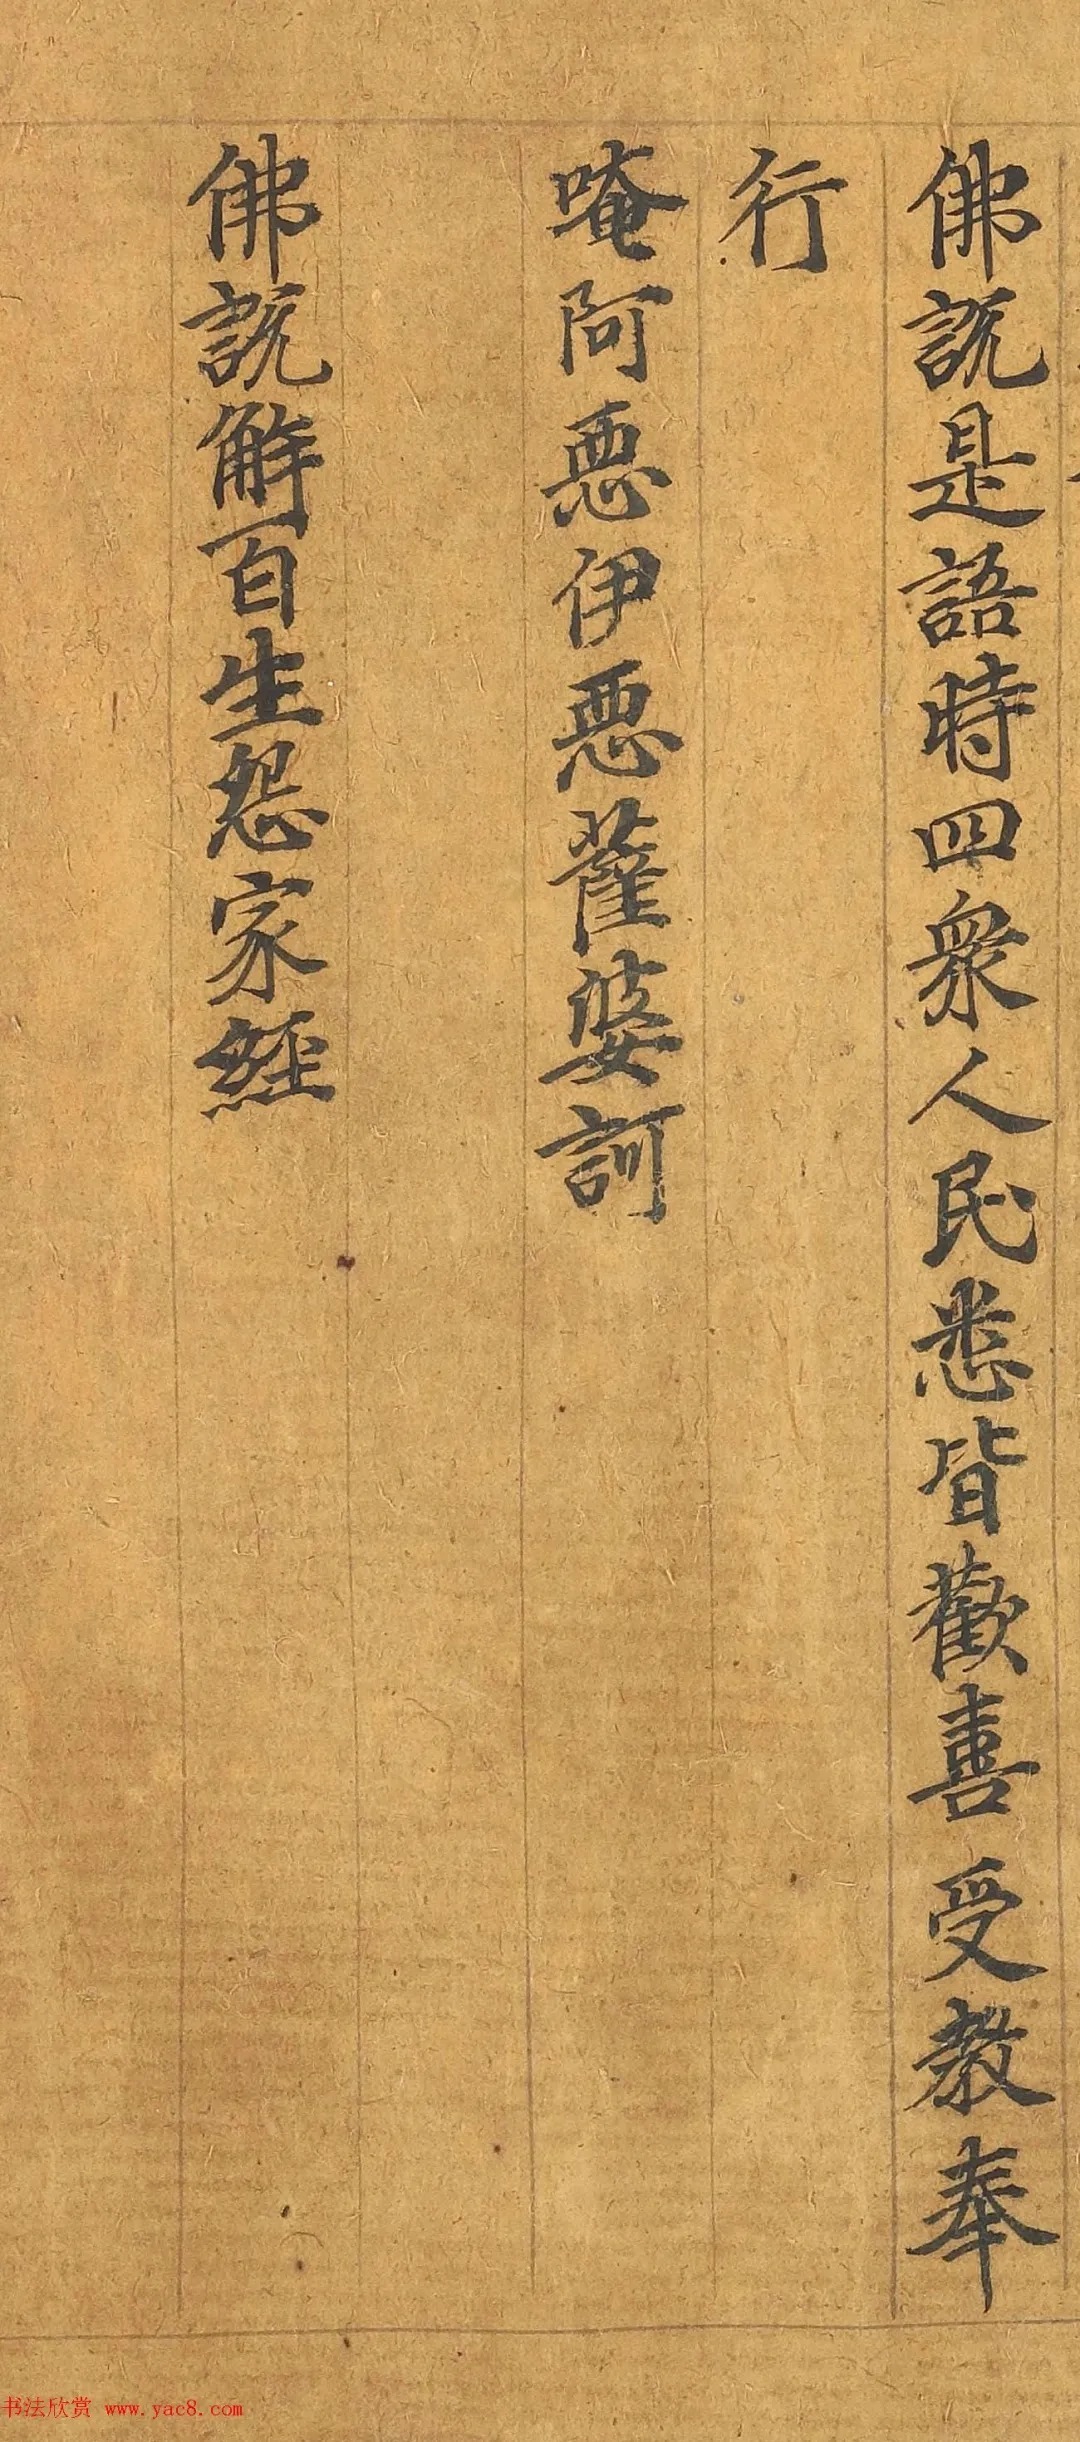 佛説是語時四衆人民悉皆歡喜受教奉
行
唵阿惡伊惡薩婆訶
佛説解百生怨家經
书法欣赏 www.yac8.com